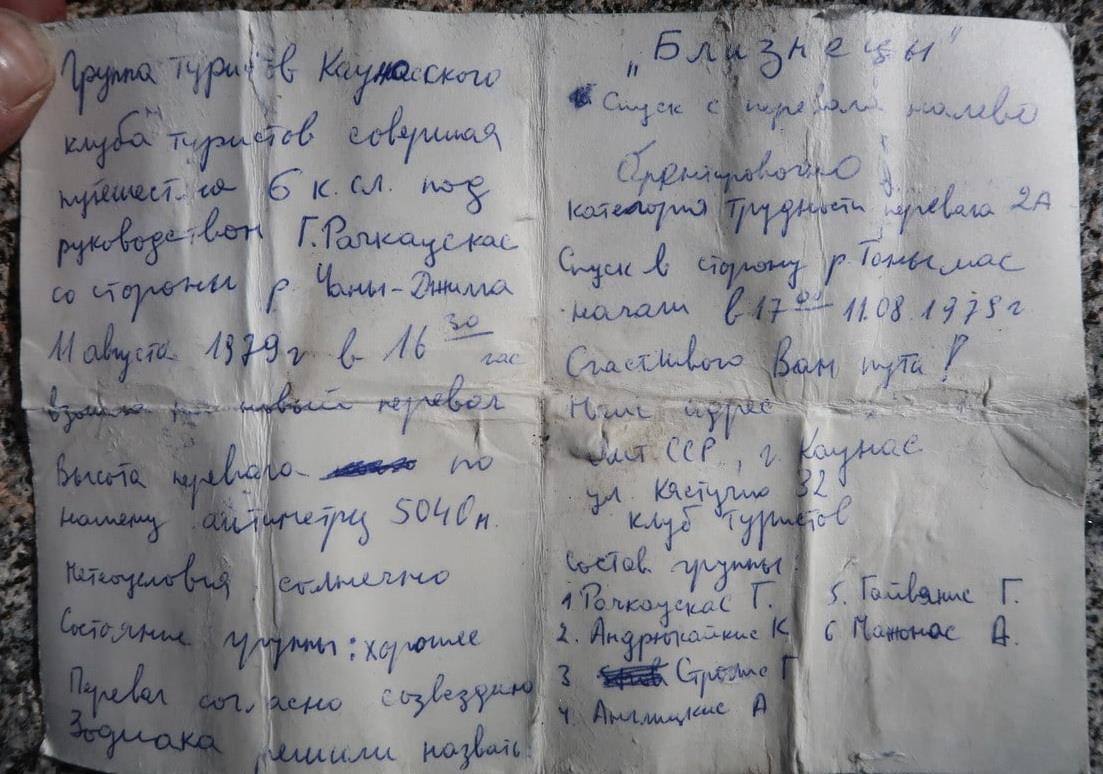 Группа туристов Каунасского
клуба туристов совершая
путешествие 6 к.сл. под
руководством Г. Рачкаускас
со стороны р. Чаны-Джилга
11 августа 1979 г в 16 30 час
взошла на новый перевал
Высота перевала по
нашему альтиметру 5040 м.
Метеоусловия солнечно
Состояние группы: хорошее
Перевал согласно созвездию
Зодиака решили назвать:
„Близнецы"
Спуск с перевала налево
Ориентировочно
категория трудности перевала 2А
Спуск в сторону р. Танымас
начали в 17 00 11.08.1979 г
Счастливого Вам пути!
Наш адрес
Лит ССР, г. Каунас
ул. Кястучио 32
клуб туристов
Состав группы:
1 Рачкаускас Г.
2. Андрюкайкис К
3 Г
4. Англицкис А
5. Гайванис Г.
6 А.